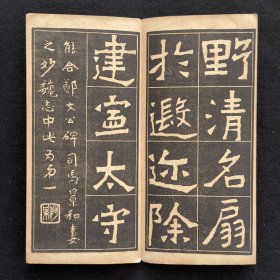 野清名扇
於遐迩除
建寍太守
能合鄭文公碑司馬景和妻
之妙魏志中此為第一